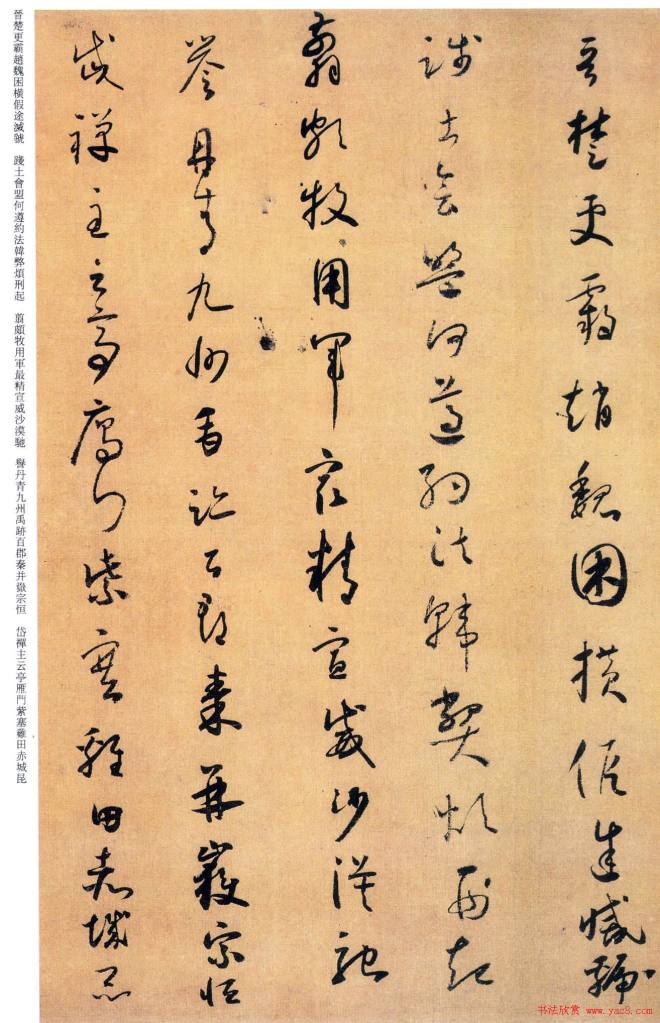 晉楚更霸趙魏困橫假途滅虢
踐土會盟何遵約法韓弊煩刑起
翦頗牧用軍最精宣威沙漠馳
譽丹青九州禹跡百郡秦并嶽宗恒
岱禪主云亭雁門紫塞雞田赤城昆
晉楚更霸趙魏困橫假途滅虢 踐土會盟何遵約法韓弊煩刑起 翦頗牧用軍最精宣威沙漠馳 譽丹青九州禹跡百郡秦并嶽宗恒 岱禪主云亭雁門紫塞雞田赤城昆
书法欣赏 www.yac8.com